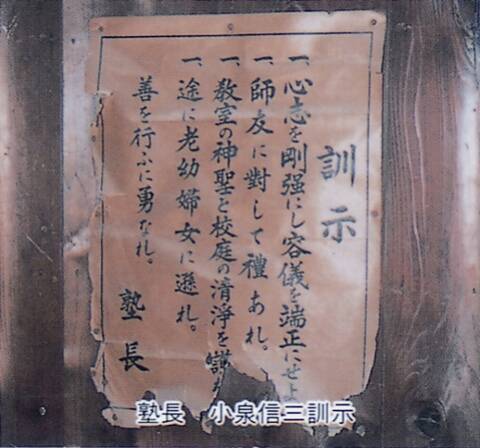 訓示
一、心志を剛强にし容儀を端正にせよ
一、師友に對して禮あれ。
一、教室の神聖と校庭の清淨を護れ
一、途に老幼婦女に遜れ。
善を行ふに勇なれ。
塾長
塾長 小泉信三訓示